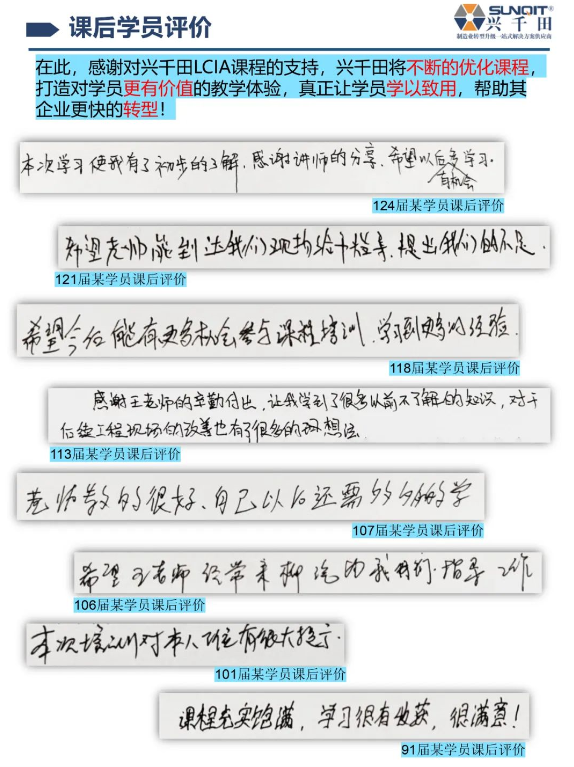 课后学员评价
SUNQIT®
兴千田
制造业转型升级一站式解决方案供应商
在此，感谢对兴千田LCIA课程的支持，兴千田将不断的优化课程，
打造对学员更有价值的教学体验，真正让学员学以致用，帮助其
企业更快的转型！
本次学习使我有了初步的了解，感谢讲师的分享、希望以后多学习。
有机会
124届某学员课后评价
希望老师能到达我们现场给予指导、提出我们的不足．
121届某学员课后评价
希望今后能有更多机会参与课程培训、学习到更多的经验．
118届某学员课后评价
感谢王老师的辛勤付出，让我学到了很多以前不了解的知识，对于
后续工程现场的改善也有了很多的 想法
113届某学员课后评价
老师教的很好、自己以后还需多多的学
107届某学员课后评价
希望王老师经常来柳汽 指导工作
106届某学员课后评价
本次培训对本人 有很大提示．
101届某学员课后评价
课程充实饱满，学习很有收获，很满意！
91届某学员课后评价